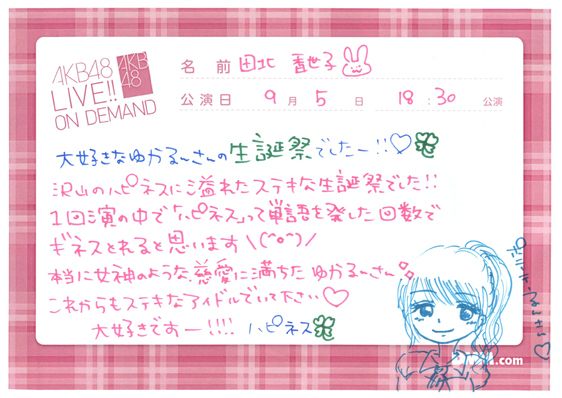 AKB48
LIVE!!
ON DEMAND
AKB
48
名 前 田北 香世子
公演日 9月 5日 18:30 公演
大好きなゆかるんさんの生誕祭でしたー!!♡
沢山のハピネスに溢れたステキな生誕祭でした!!
1回演の中で「ハピネス」って単語を発した回数で
ギネスとれると思います\(^o^)/
本当に女神のような、慈愛に満ちたゆかるんさん
これからもステキなアイドルでいて下さい♡
大好きですー!!!! ハピネス
るんさん♡
.com